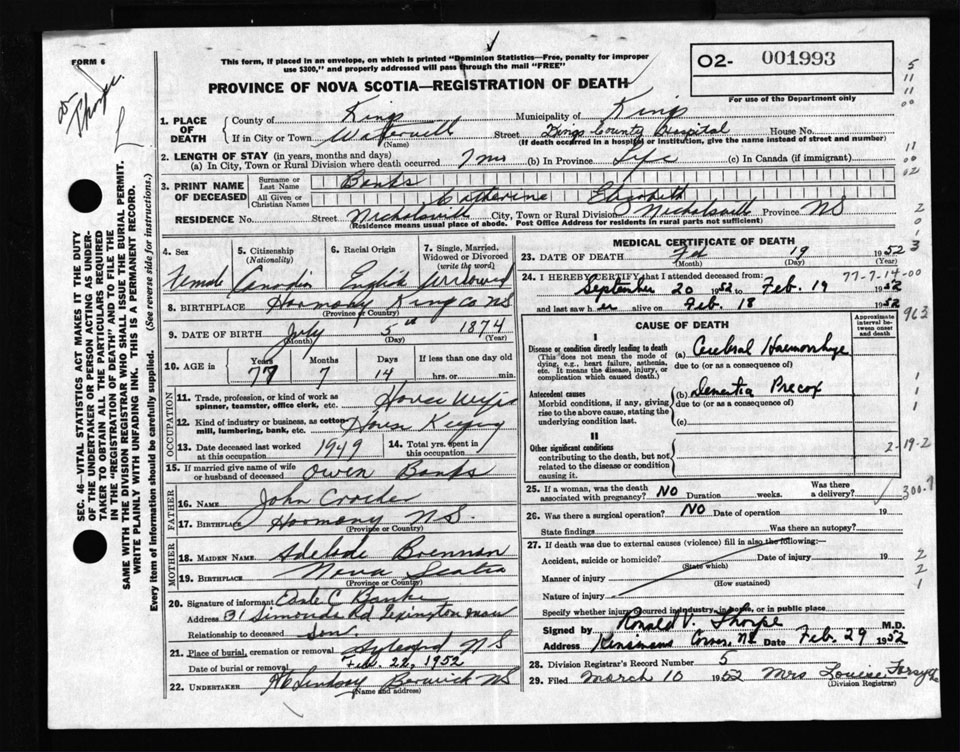 FORM 6
This form, if placed in an envelope, on which is printed "Dominion Statistics—Free, penalty for improper
use $300," and properly addressed will pass through the mail "FREE"
O2- 001993
For use of the Department only
PROVINCE OF NOVA SCOTIA—REGISTRATION OF DEATH
Thorpe
1. PLACE OF DEATH
County of Kings Municipality of Kings
If in City or Town Waterville Street Kings County Hospital House No.
(Name) (If death occurred in a hospital or institution, give the name instead of street and number)
2. LENGTH OF STAY (in years, months and days)
(a) In City, Town or Rural Division where death occurred 7 mo (b) In Province Life (c) In Canada (if immigrant)
3. PRINT NAME OF DECEASED
Surname or Last Name Banks
All Given or Christian Names Catherine Elizabeth
RESIDENCE No. Street Nicholsville City, Town or Rural Division Nicholsville Province NS
(Residence means usual place of abode. Post Office Address for residents in rural parts not sufficient)
4. Sex Female
5. Citizenship (Nationality) Canadian
6. Racial Origin English
7. Single, Married, Widowed or Divorced (write the word) Widowed
8. BIRTHPLACE Harmony Kings Co NS
(Province or Country)
9. DATE OF BIRTH July 5th 1874
(Month) (Day) (Year)
10. AGE in Years Months Days If less than one day old
77 7 14 hrs. or min.
OCCUPATION
11. Trade, profession, or kind of work as spinner, teamster, office clerk, etc. House Wife
12. Kind of industry or business, as cotton mill, lumbering, bank, etc. House Keeping
13. Date deceased last worked at this occupation 1949
14. Total yrs. spent in this occupation
15. If married give name of wife or husband of deceased Owen Banks
FATHER
16. NAME John Crocker
17. BIRTHPLACE Harmony N.S.
(Province or Country)
MOTHER
18. MAIDEN NAME Adelade Brennan
19. BIRTHPLACE Nova Scotia
(Province or Country)
20. Signature of informant C Banks
Address 31 Rd Lexington
Relationship to deceased son.
21. Place of burial, cremation or removal Aylesford NS
Date of burial or removal Feb. 22, 1952
22. UNDERTAKER Lindsay Berwick NS
(Name and address)
SEC. 46—VITAL STATISTICS ACT MAKES IT THE DUTY
OF THE UNDERTAKER OR PERSON ACTING AS UNDER-
TAKER TO OBTAIN ALL THE PARTICULARS REQUIRED
IN THE "REGISTRATION OF DEATH" AND TO FILE THE
SAME WITH THE DIVISION REGISTRAR WHO SHALL ISSUE THE BURIAL PERMIT.
WRITE PLAINLY WITH UNFADING INK. THIS IS A PERMANENT RECORD.
Every item of Information should be carefully supplied. (See reverse side for instructions.)
MEDICAL CERTIFICATE OF DEATH
23. DATE OF DEATH Feb 19 1952
(Month) (Day) (Year)
24. I HEREBY CERTIFY that I attended deceased from: 77-7-14-00
September 20 1952 to Feb. 19 1952
and last saw h er alive on Feb. 18 1952
CAUSE OF DEATH
Approximate interval between onset and death
963
I
Disease or condition directly leading to death
(This does not mean the mode of dying, e.g., heart failure, asthenia, etc. It means the disease, injury, or complication which caused death.)
(a) Cerebral Haemorrhage
due to (or as a consequence of)
Antecedent causes
Morbid conditions, if any, giving rise to the above cause, stating the underlying condition last.
(b) Dementia Precox
due to (or as a consequence of)
(c)
II
Other significant conditions
contributing to the death, but not related to the disease or condition causing it.
2-19-2
25. If a woman, was the death associated with pregnancy? NO Duration weeks. Was there a delivery?
300.7
26. Was there a surgical operation? NO Date of operation 19
State findings Was there an autopsy?
27. If death was due to external causes (violence) fill in also the following:—
Accident, suicide or homicide? Date of injury 19
(State which)
Manner of injury
(How sustained)
Nature of injury
Specify whether injury occurred in industry, in home, or in public place
Signed by Ronald V. Thorpe M.D.
Address Date Feb. 29 1952
28. Division Registrar's Record Number 5
29. Filed March 10 1952 Mrs Louise Forsythe
(Division Registrar)